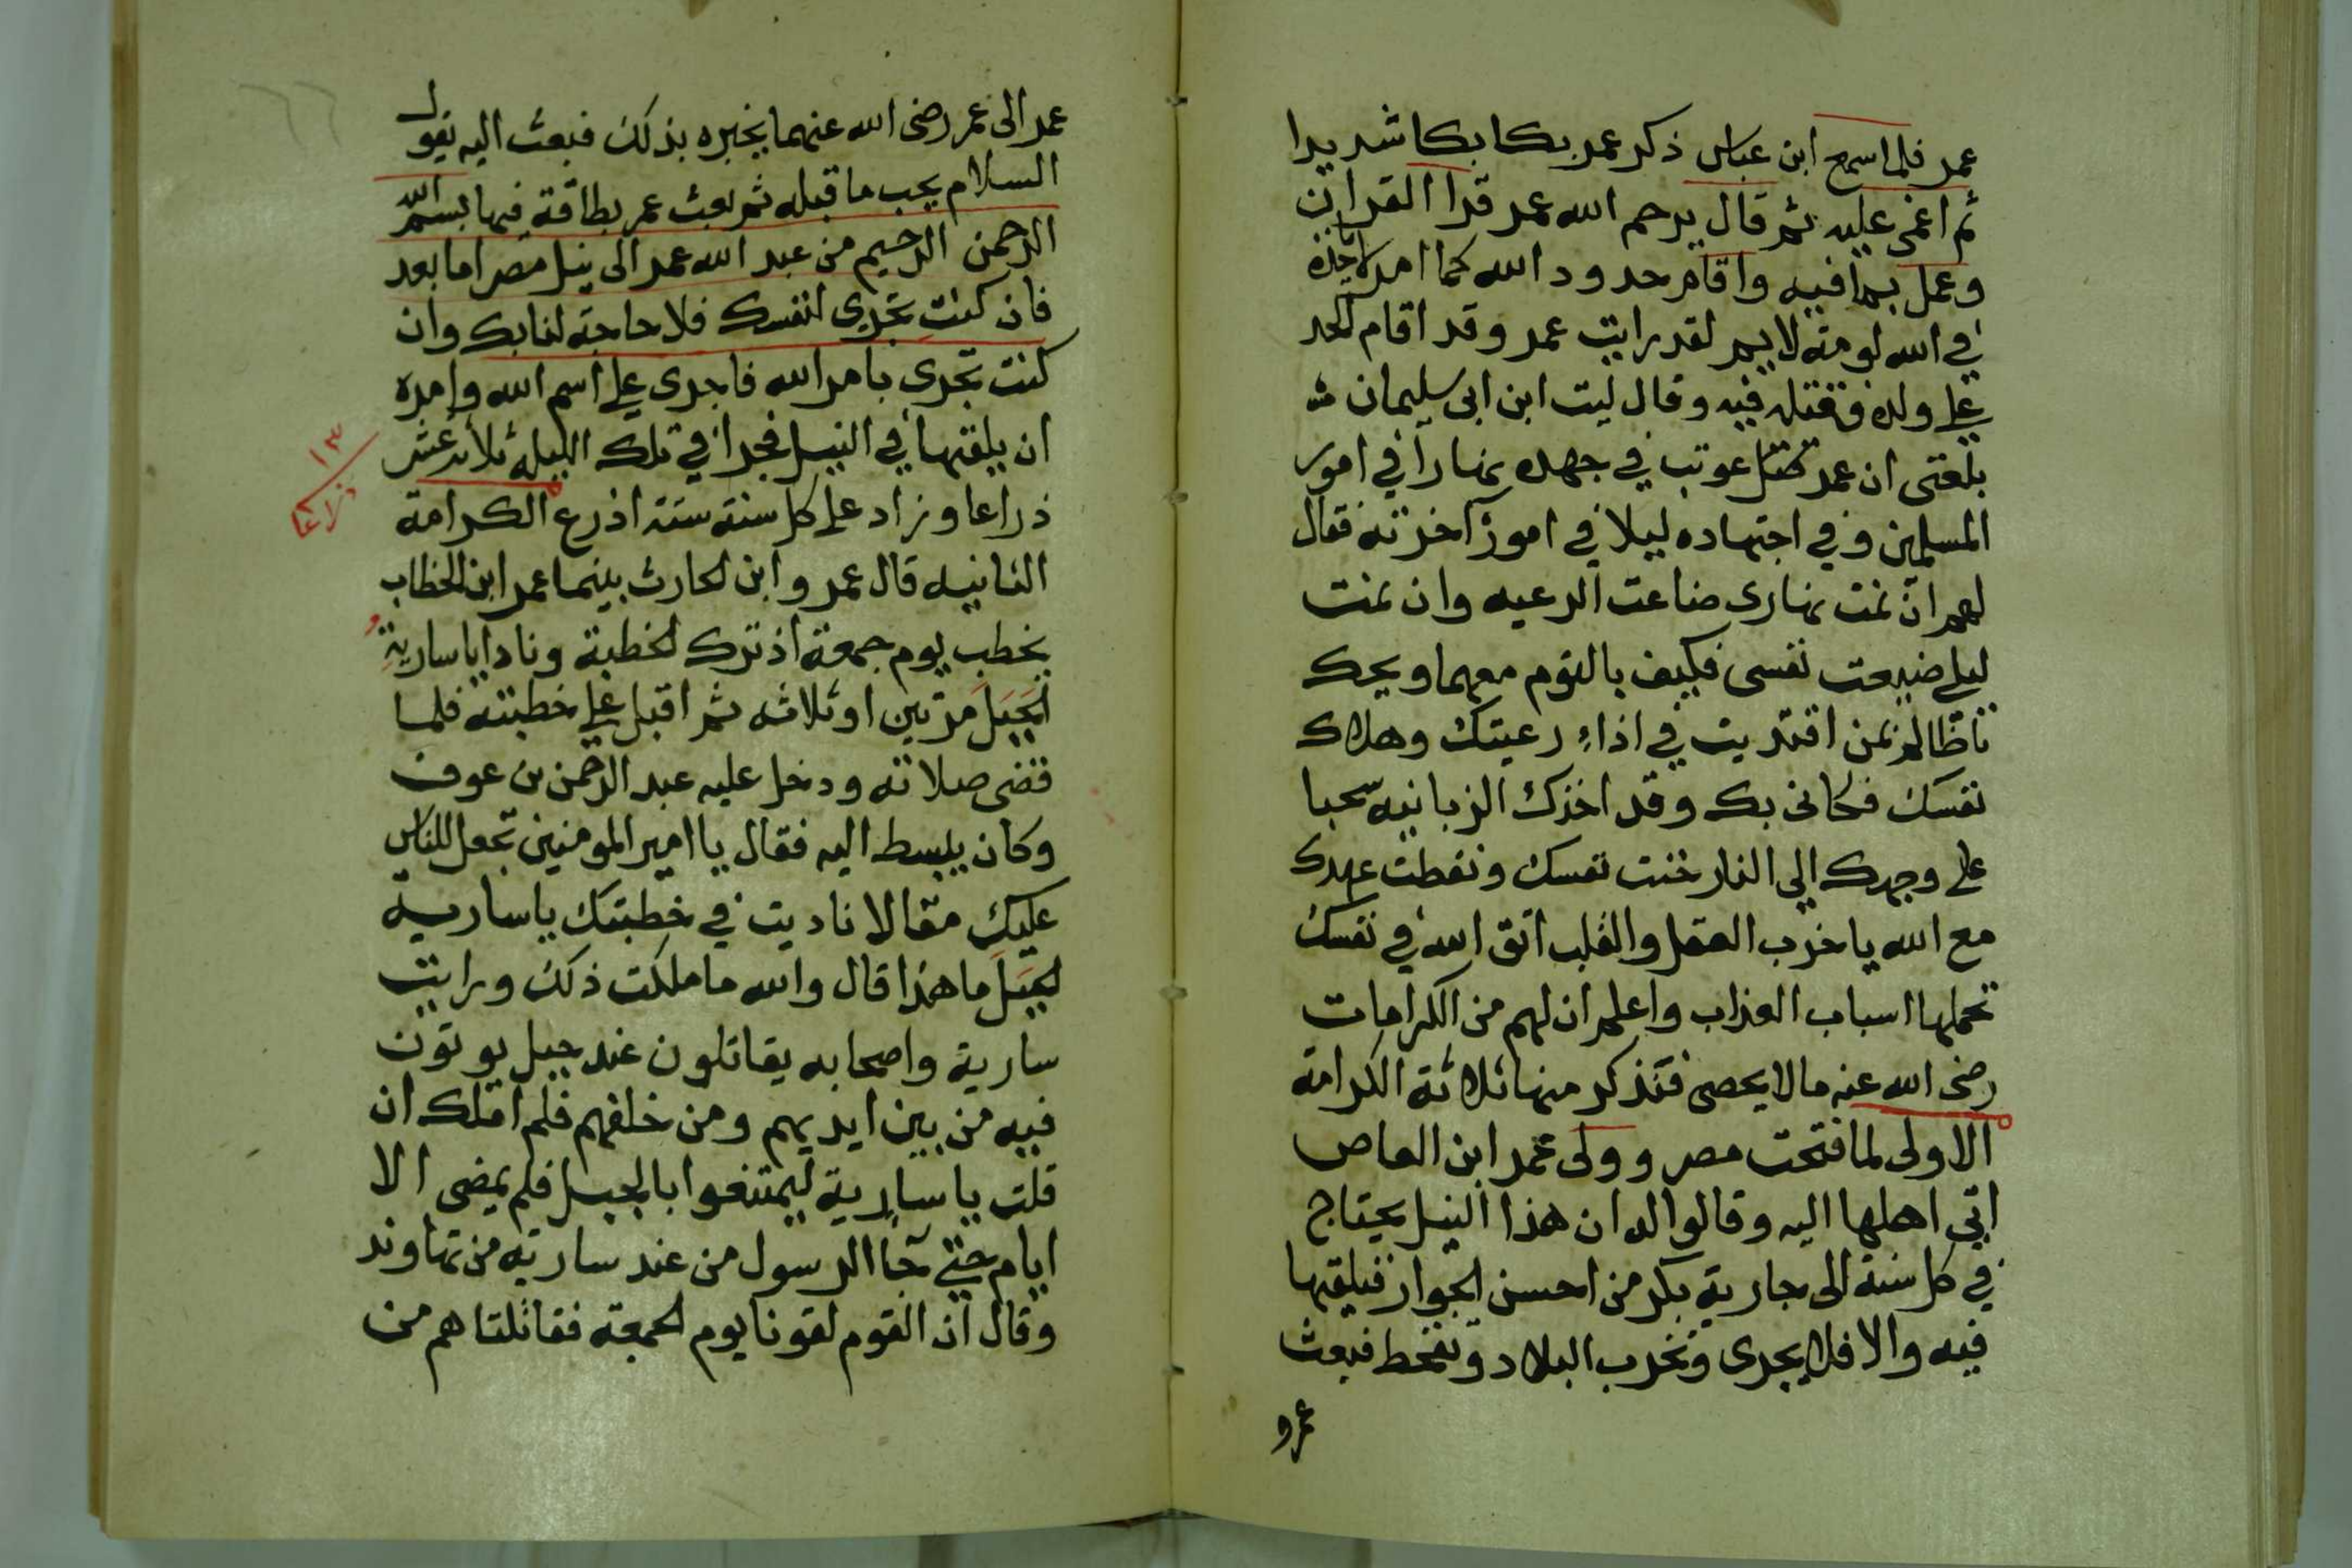 عمر فلما سمع ابن عباس ذكر عمر بكا بكا شديدا
ثم اغمى عليه ثم قال يرحم الله عمر قرا القران
وعمل بما فيه واقام حدود الله كما امر لا تاخذه
في الله لومة لايم لقد رايت عمر وقد اقام الحد
على ولده فقتله فيه وقال ليت ابن ابى سليمان
بلغنى ان عمر عوتب في جهده نهارا في امور
المسلمين وفي اجتهاده ليلا في امور آخرته فقال
لهم ان نمت نهارى ضاعت الرعيه وان نمت
ليلى ضيعت نفسى فكيف بالنوم معهما ويحك
يا ظالم بمن اقتديت في اذاء رعيتك وهلاك
نفسك فكانى بك وقد اخذك الزبانيه سحبا
على وجهك الى النار خنت نفسك ونقطت عهدك
مع الله يا خرب العقل والقلب اتق الله في نفسك
تحملها اسباب العذاب واعلم ان لهم من الكرامات
رضى الله عنه ما لا يحصى فنذكر منها ثلاثة الكرامة
الاولى لما فتحت مصر وولى عمر ابن العاص
اتي اهلها اليه وقالوا له ان هذا النيل يحتاج
في كل سنة الى جارية بكر من احسن الجوار فيلقيها
فيه والا فلا يجرى وتخرب البلاد وتقحط فبعث
عمرو
عمر الى عمر رضى الله عنهما يخبره بذلك فبعث اليه يقول
السلام يجب ما قبله ثم بعث عمر بطاقة فيها بسم الله
الرحمن الرحيم من عبد الله عمر الى نيل مصر اما بعد
فان كنت تجرى لنفسك فلا حاجة لنا بك وان
كنت تجرى بامر الله فاجرى على اسم الله وامره
ان يلقيها في النيل فجرا في تلك الليلة ثلاثة عشر
١٣
ذراعا
ذراعا وزاد على كل سنة ستة اذرع الكرامة
الثانيه قال عمر وابن الحارث بينما عمر ابن الخطاب
يخطب يوم جمعة اذ ترك الخطبة ونادا يا سارية
الجبل مرتين او ثلاثه ثم اقبل على خطبته فلما
قضى صلاته ودخل عليه عبد الرحمن بن عوف
وكان يبسط اليه فقال يا امير المومنين تجعل للناس
عليك مقالا ناديت في خطبتك يا ساريه
الجبل ما هذا قال والله ما ملكت ذلك ورايت
سارية واصحابه يقاتلون عند جبل يوتون
فيه من بين ايديهم ومن خلفهم فلم املك ان
قلت يا سارية ليمتنعوا بالجبل فلم يمضى الا
ايام حتى جآ الرسول من عند سارية من نهاوند
وقال ان القوم لقونا يوم الجمعة فقاتلناهم من